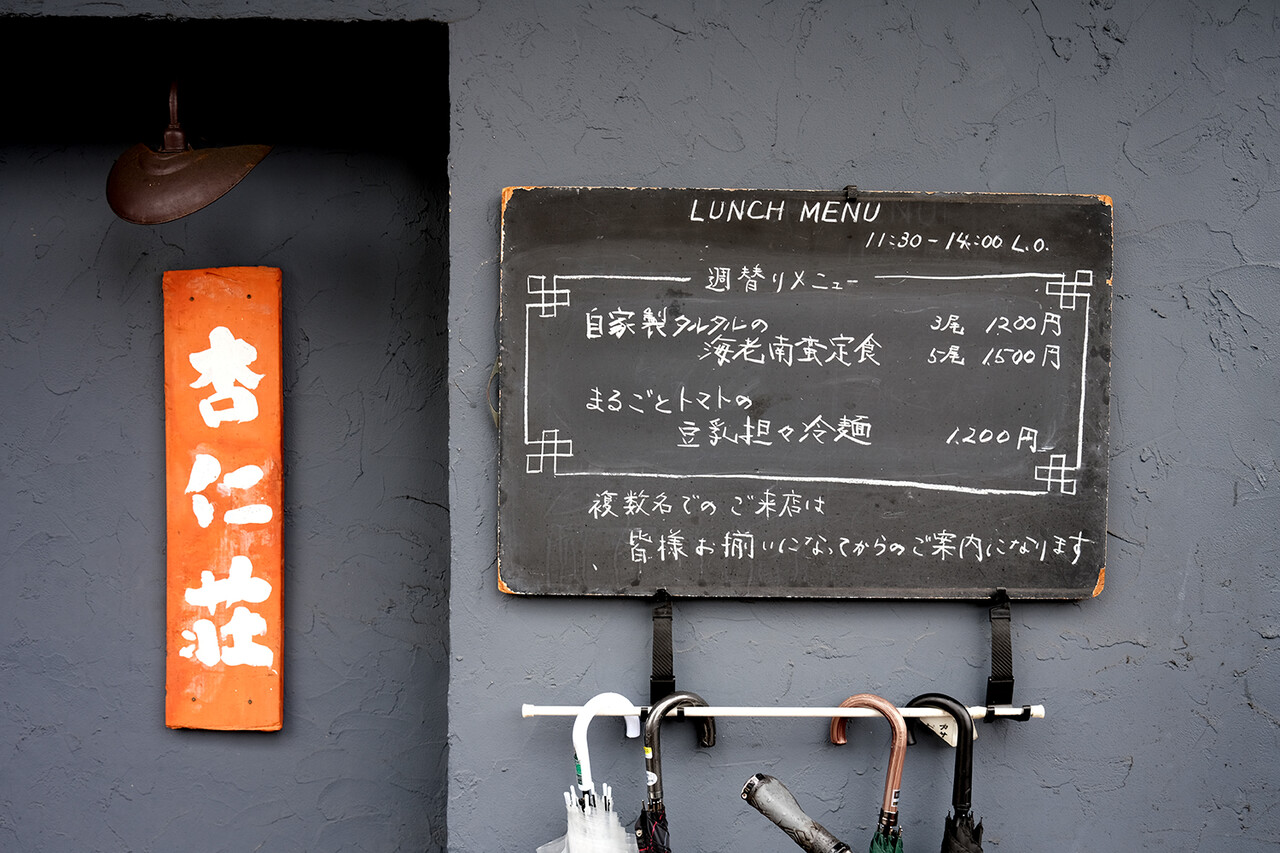 杏仁荘
LUNCH MENU
11:30-14:00 L.O.
週替りメニュー
自家製タルタルの 3尾 1200円
海老南蛮定食 5尾 1,500円
まるごとトマトの
豆乳担々冷麺 1,200円
複数名でのご来店は
皆様お揃いになってからのご案内になります